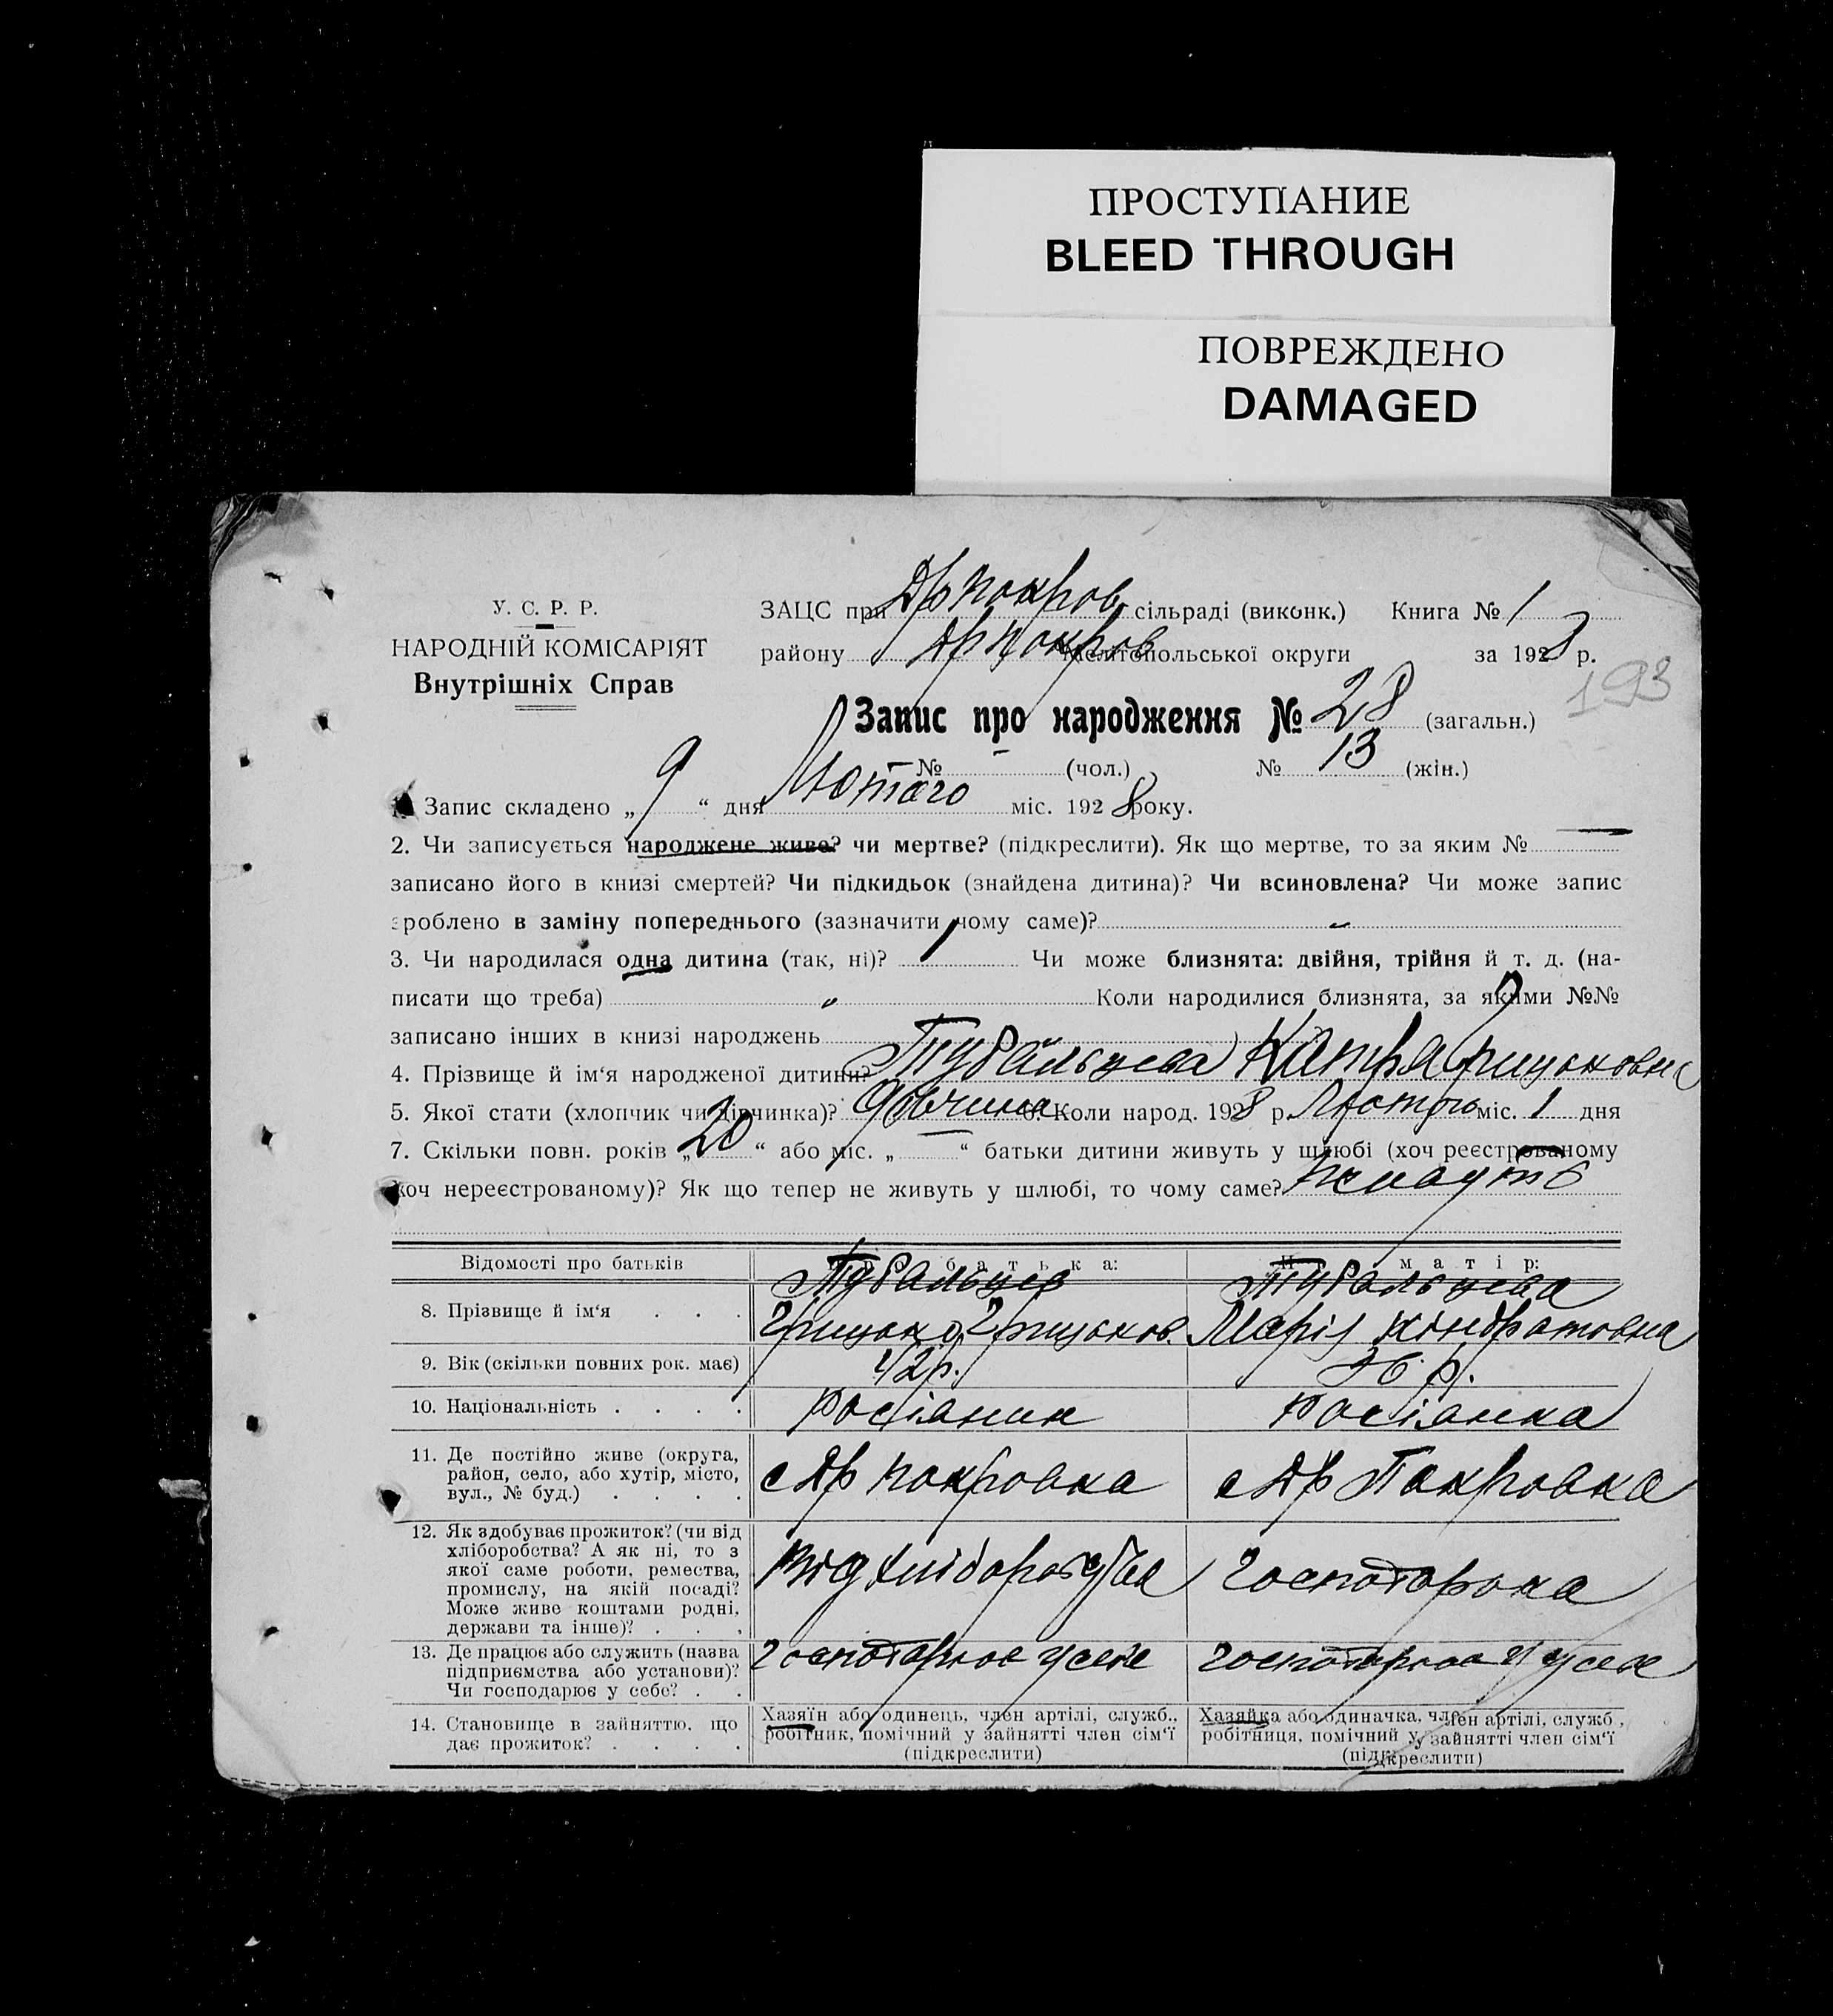 ПРОСТУПАНИЕ
BLEED THROUGH
ПОВРЕЖДЕНО
DAMAGED
У. С. Р. Р.
НАРОДНІЙ КОМІСАРІЯТ
Внутрішніх Справ
ЗАЦС при Др Покров сільраді (виконк.) Книга № 1
району Др Покров Мелитопольської округи за 1928 р.
193
Запис про народження № 28 (загальн.)
№ — (чол.) № 13 (жін.)
1. Запис складено „9“ дня Лютого міс. 1928 року.
2. Чи записується народжене живе? чи мертве? (підкреслити). Як що мертве, то за яким № —
записано його в книзі смертей? Чи підкидьок (знайдена дитина)? Чи всиновлена? Чи може запис
зроблено в заміну попереднього (зазначити чому саме)? „
3. Чи народилася одна дитина (так, ні)? 1 Чи може близнята: двійня, трійня й т. д. (на-
писати що треба) „ Коли народилися близнята, за якими №№
записано інших в книзі народжень
4. Прізвище й ім‘я народженої дитини? Тубальцева Катря Грицьковна
5. Якої стати (хлопчик чи дівчинка)? Дівчина 6. Коли народ. 1928 р. Лютого міс. 1 дня
7. Скільки повн. років „20“ або міс. „—“ батьки дитини живуть у шлюбі (хоч реєстрованому
хоч нереєстрованому)? Як що тепер не живуть у шлюбі, то чому саме?
Відомості про батьків Про батька: Про матір:
8. Прізвище й ім‘я . . . Тубальцев Тубальцева
Грицько Грицьков. Марія Кіндратовна
9. Вік (скільки повних рок. має) 42 р. 36 р.
10. Національність . . . . Росіянин Росіянка
11. Де постійно живе (округа,
район, село, або хутір, місто,
вул., № буд.) . . . . с Др Покровка с Др Покровка
12. Як здобуває прожиток? (чи від
хліборобства? А як ні, то з
якої саме роботи, ремества,
промислу, на якій посаді?
Може живе коштами родні,
держави та інше)? . . . Від хліборобства
13. Де працює або служить (назва
підприємства або установи)?
Чи господарює у себе? . .
14. Становище в зайняттю, що
дає прожиток? . . . .
Хазяїн або одинець, член артілі, служб.,
робітник, помічний у зайнятті член сім‘ї
(підкреслити)
Хазяйка або одиначка, член артілі, служб.,
робітниця, помічний у зайнятті член сім‘ї
(підкреслити)